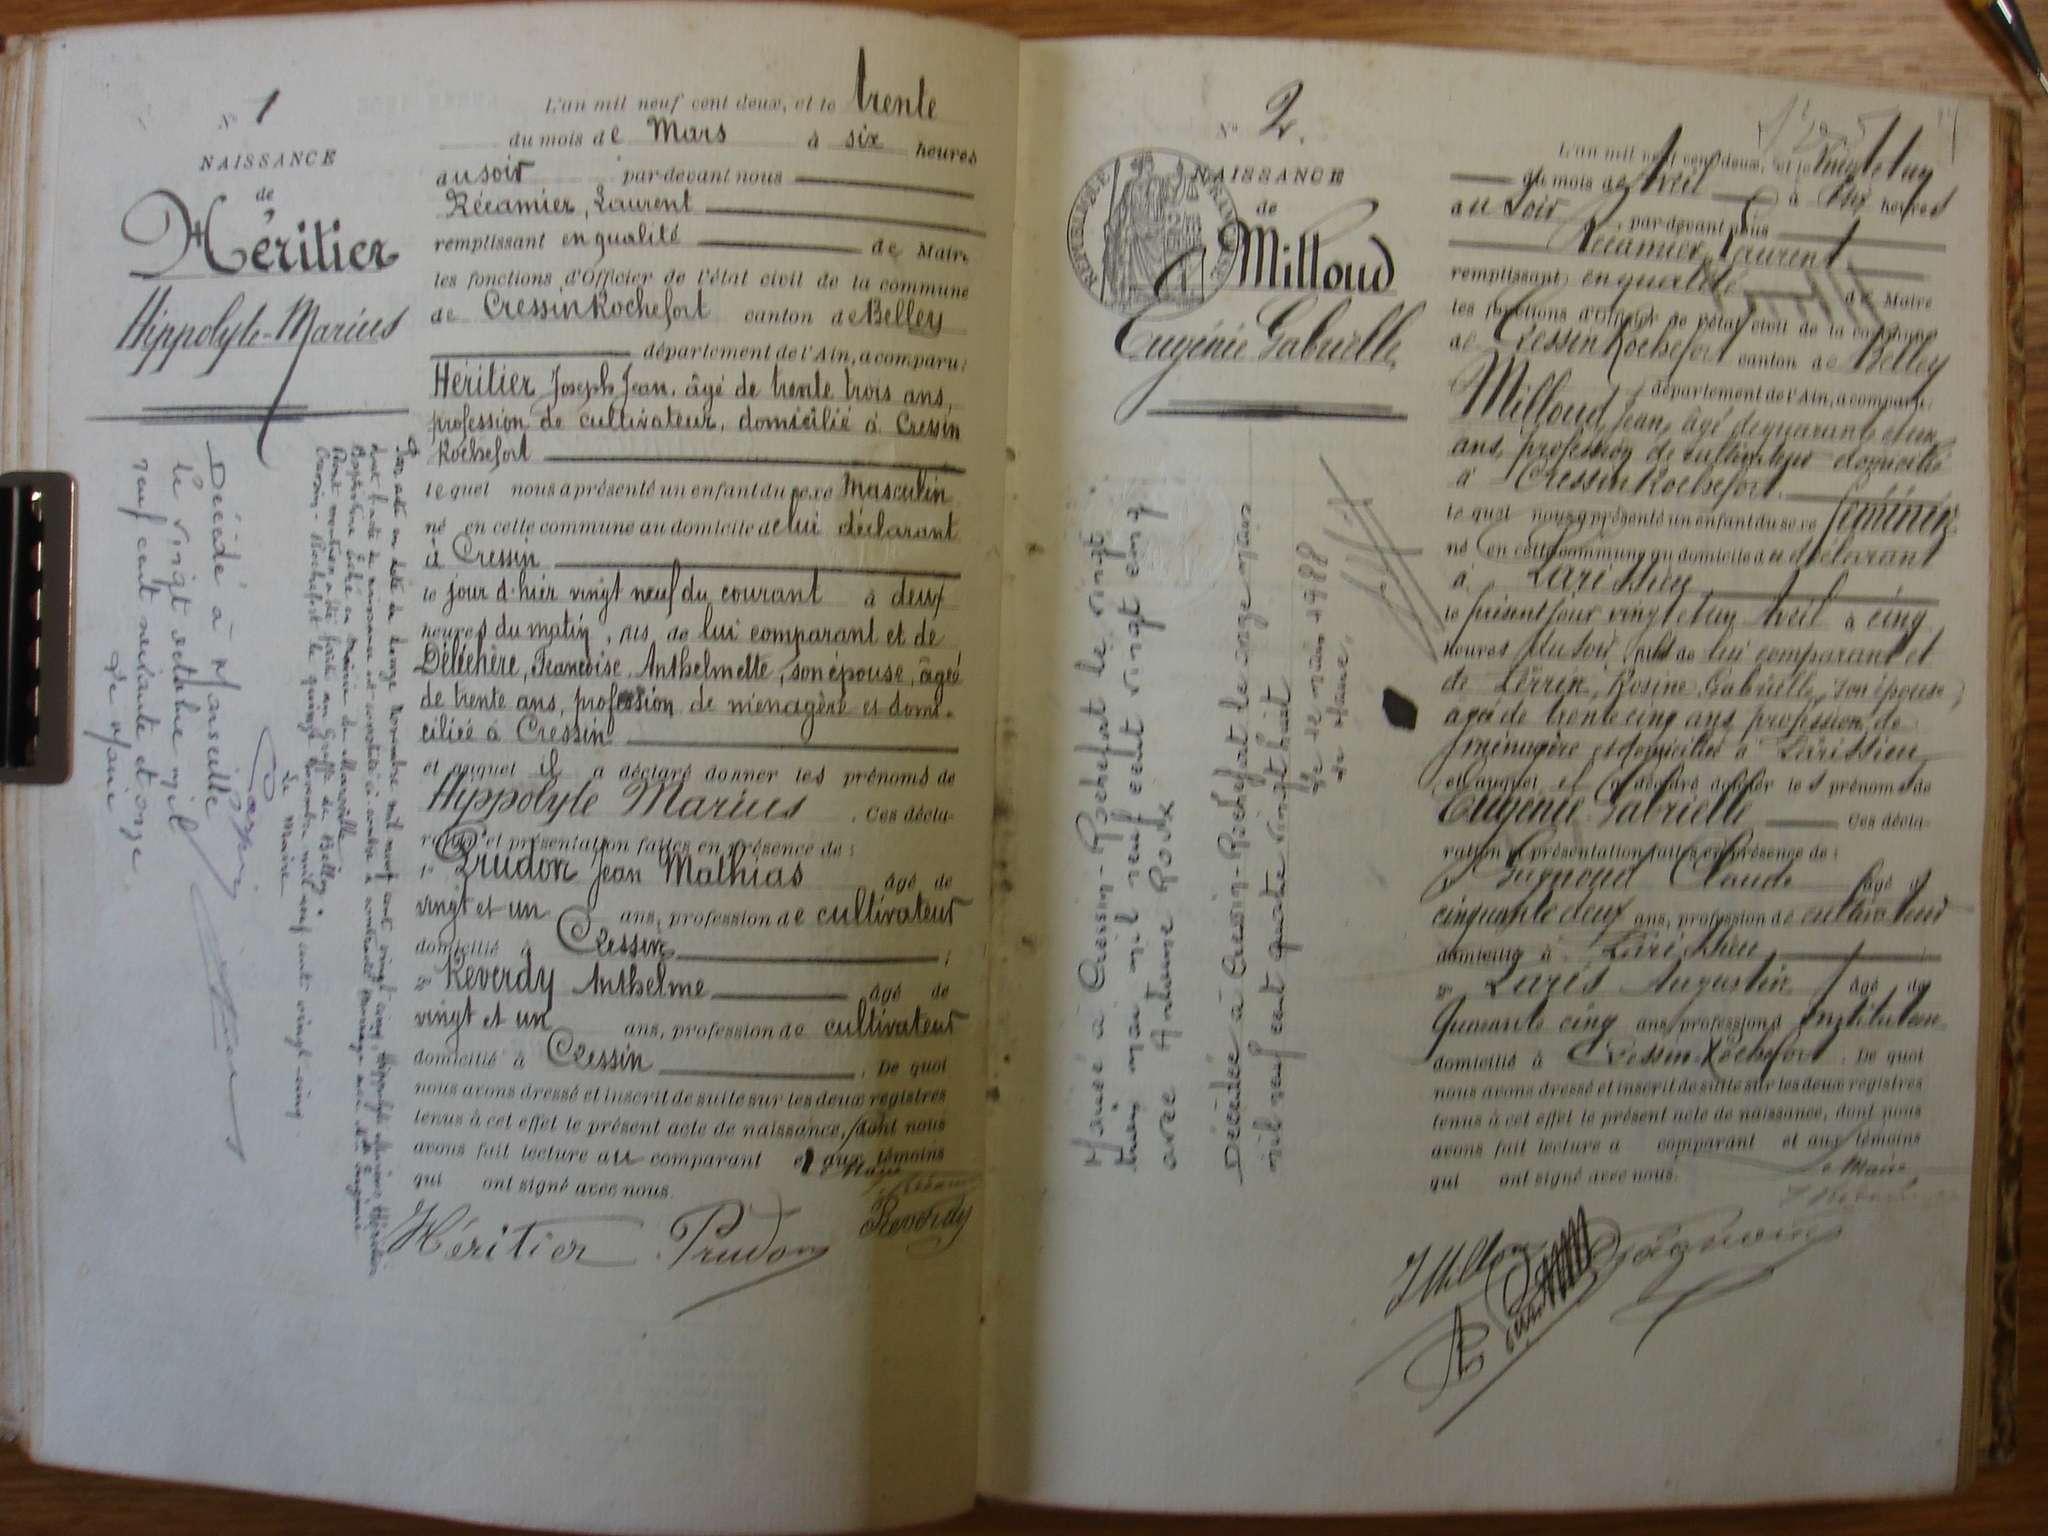 N° 1
NAISSANCE
de
Héritier
Hippolyte-Marius
L'an mil neuf cent deux, et le trente
du mois de Mars à six heures
au soir par-devant nous
Récamier, Laurent
remplissant en qualité de Maire
les fonctions d'Officier de l'état civil de la commune
de Cressin Rochefort canton de Belley
département de l'Ain, a comparu:
Héritier Joseph Jean, âgé de trente trois ans,
profession de cultivateur, domicilié à Cressin
Rochefort
lequel nous a présenté un enfant du sexe Masculin
né en cette commune au domicile de lui déclarant
à Cressin
le jour d'hier vingt neuf du courant à deux
heures du matin, fils de lui comparant et de
Déléchère, Françoise Anthelmette, son épouse, âgée
de trente ans, profession de ménagère et domi-
ciliée à Cressin
et auquel il a déclaré donner les prénoms de
Hyppolyte Marius. Ces décla-
ration et présentation faites en présence de:
1° Prudon Jean Mathias âgé de
vingt et un ans, profession de cultivateur
domicilié à Cressin;
2° Reverdy Anthelme âgé de
vingt et un ans, profession de cultivateur
domicilié à Cressin. De quoi
nous avons dressé et inscrit de suite sur les deux registres
tenus à cet effet le présent acte de naissance, dont nous
avons fait lecture au comparant et aux témoins
qui ont signé avec nous.
Le Maire
Héritier Prudon Reverdy
Par acte en date du douze novembre mil neuf cent vingt-cinq, Hippolyte Marius Héritier
dont l'acte de naissance est constaté ci-contre a contracté mariage avec
en Mairie de Marseille
Dont mention a été faite au Greffe de Belley.
Cressin-Rochefort le quinze novembre mil neuf cent vingt-cinq.
Le Maire
Décédé à Marseille
le vingt octobre mil
neuf cent soixante et onze
Le Maire
N° 2.
NAISSANCE
de
Milloud
Eugénie Gabrielle
RÉPUBLIQUE FRANÇAISE
L'an mil neuf cent deux, et le vingt et un
du mois de Avril à six heures
au soir, par-devant nous
Récamier, Laurent
remplissant en qualité de Maire
les fonctions d'Officier de l'état civil de la commune
de Cressin Rochefort canton de Belley
département de l'Ain, a comparu:
Milloud, Jean, âgé de quarante et un
ans, profession de cultivateur domicilié
à Cressin Rochefort.
lequel nous a présenté un enfant du sexe féminin
né en cette commune au domicile du déclarant
à Larissieu
le présent jour vingt et un Avril à cinq
heures du soir, fille de lui comparant et
de Perrin, Rosine Gabrielle, son épouse,
agée de trente cinq ans, profession de
ménagère et domiciliée à Larissieu
et auquel il a déclaré donner les prénoms de
Eugénie Gabrielle Ces décla-
ration et présentation faites en présence de:
1° Claude âgé de
cinquante deux ans, profession de cultivateur
domicilié à Larissieu;
2° Augustin âgé de
Quarante cinq ans, profession d'instituteur
domicilié à Cressin-Rochefort. De quoi
nous avons dressé et inscrit de suite sur les deux registres
tenus à cet effet le présent acte de naissance, dont nous
avons fait lecture a comparant et aux témoins
qui ont signé avec nous.
Le Maire
Mariée à Cressin-Rochefort le vingt
mil neuf cent vingt cinq
avec Antoine
Décédée à Cressin-Rochefort le onze mars
mil neuf cent quatre vingt huit
Le 12 mars 1988
Le Maire,